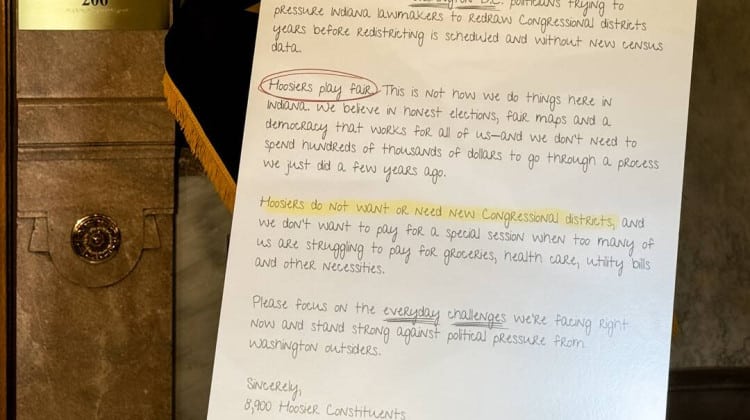 206
Washington D.C. politicians trying to
pressure Indiana lawmakers to redraw Congressional districts
years before redistricting is scheduled and without new census
data.
Hoosiers play fair. This is not how we do things here in
Indiana. We believe in honest elections, fair maps and a
democracy that works for all of us—and we don't need to
spend hundreds of thousands of dollars to go through a process
we just did a few years ago.
Hoosiers do not want or need new Congressional districts, and
we don't want to pay for a special session when too many of
us are struggling to pay for groceries, health care, utility bills
and other necessities.
Please focus on the everyday challenges we're facing right
now and stand strong against political pressure from
Washington outsiders.
Sincerely,
8,900 Hoosier Constituents